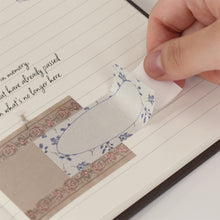 in memory
that have already passed
what's no longer here